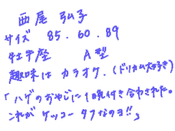 西尾 弘子
サイズ 85.60.89
牡牛座 A型
趣味は カラオケ.(ドリカム大好き)
「ハゲのおやじに1晩付き合わされた。
これが ケッコー タフなのヨ!!」